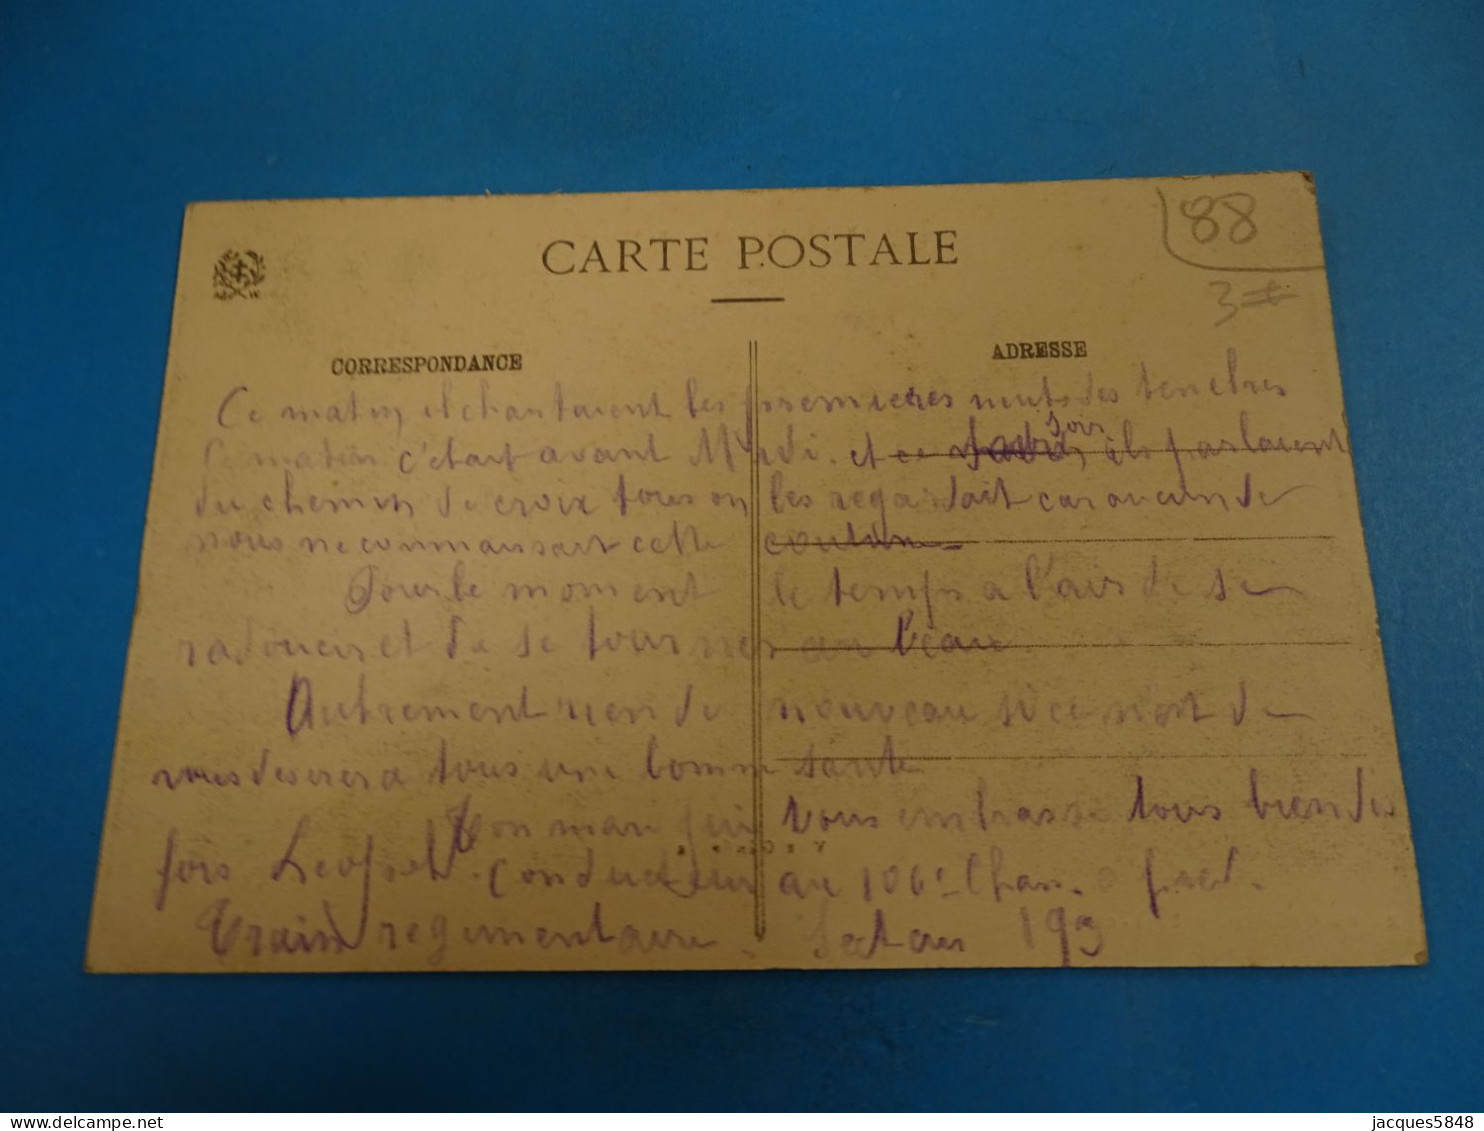 88
3
CARTE POSTALE
CORRESPONDANCE
ADRESSE
Ce matin, il chantaient les premieres nuits des tenebres
Ce matin c'etait avant Midi. et ce soir, ils parlaient
du chemin de croix tous on les regardait car aucun de
nous ne connaissait cette coutume
Pour le moment le temps a l'air de se
radoucir et de se tourner au beau
Autrement rien de nouveau si ce n'est de
vous desirer a tous une bonne sante
Ton mari qui vous embrasse tous bien des
fois Leopold. Conducteur au 106e Chas. a pied.
Train regimentaire. Secteur 193
jacques5848